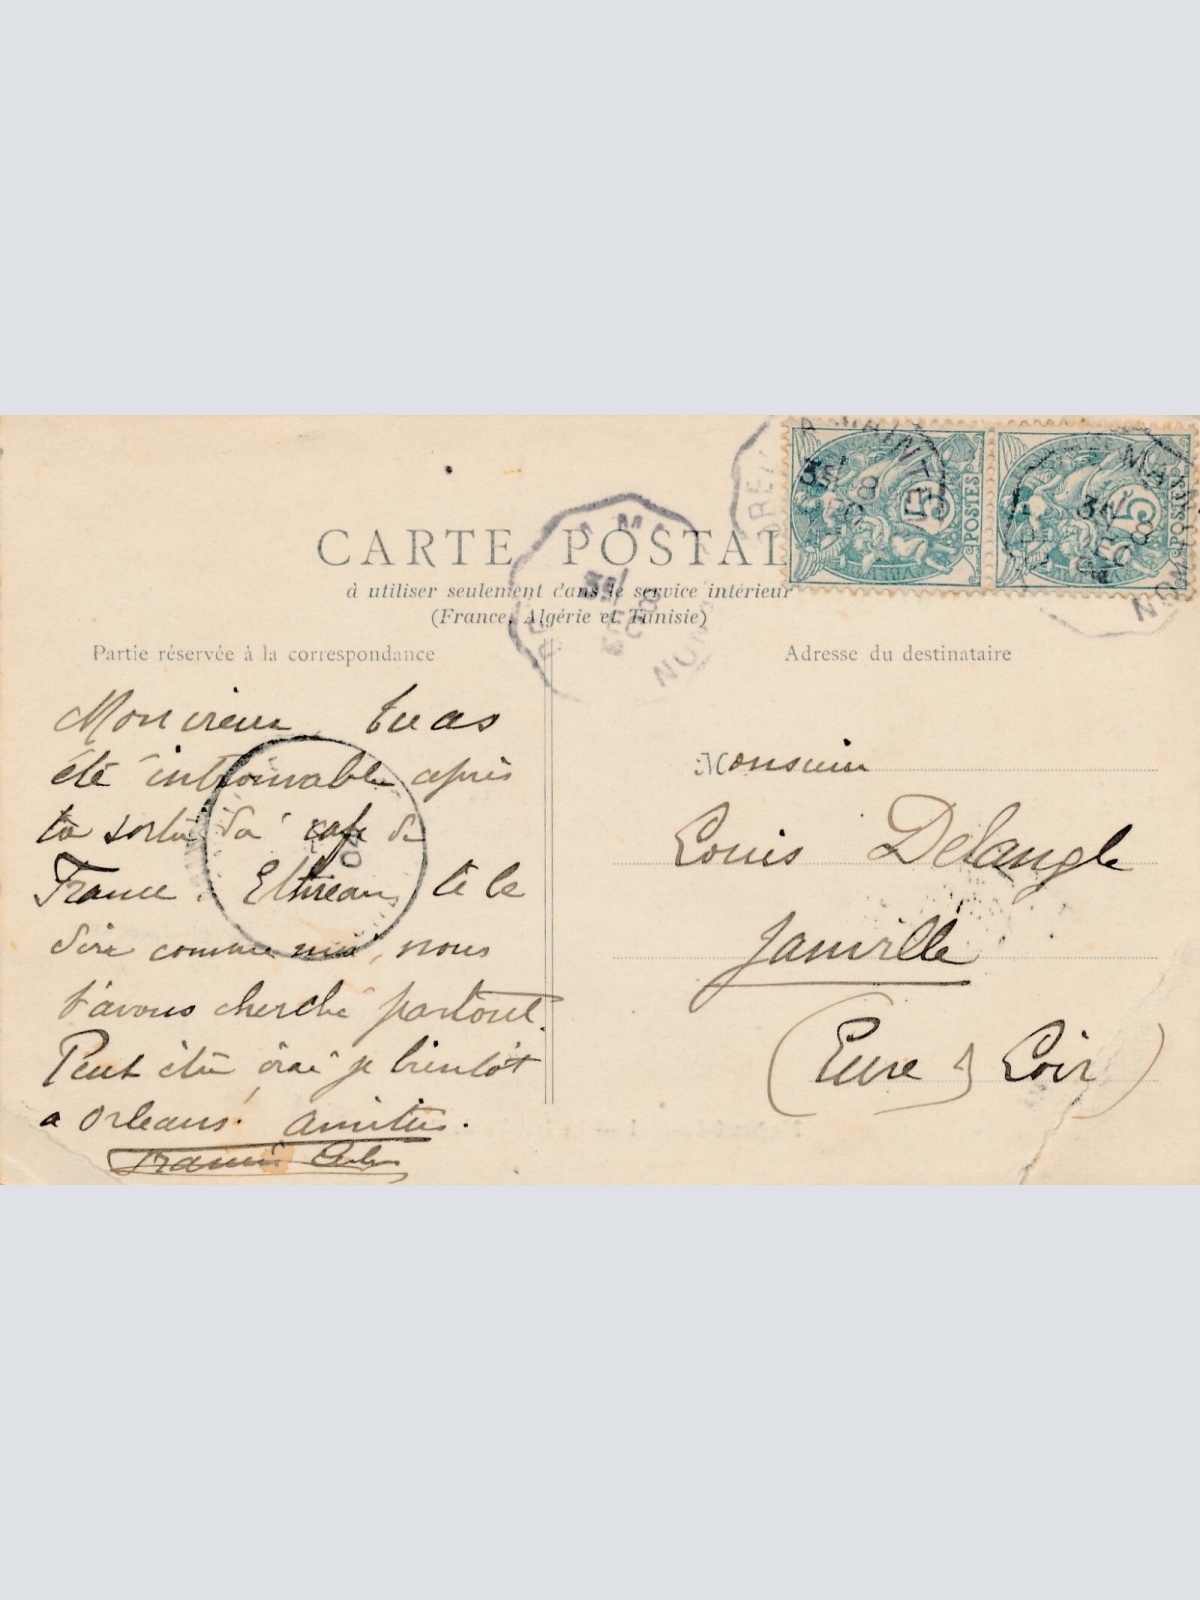 CARTE POSTAL
à utiliser seulement dans le service intérieur
(France, Algérie et Tunisie)
Partie réservée à la correspondance
Mon vieux, tu as
été introuvable après
ta sortie du café de
France. te le
dire comme moi, nous
t'avons cherché partout.
Peut être irai je bientôt
a Orleans! amitiés.
Adresse du destinataire
Monsieur
Louis Delangle
Janville
(Eure & Loir)
5 POSTES
5 POSTES